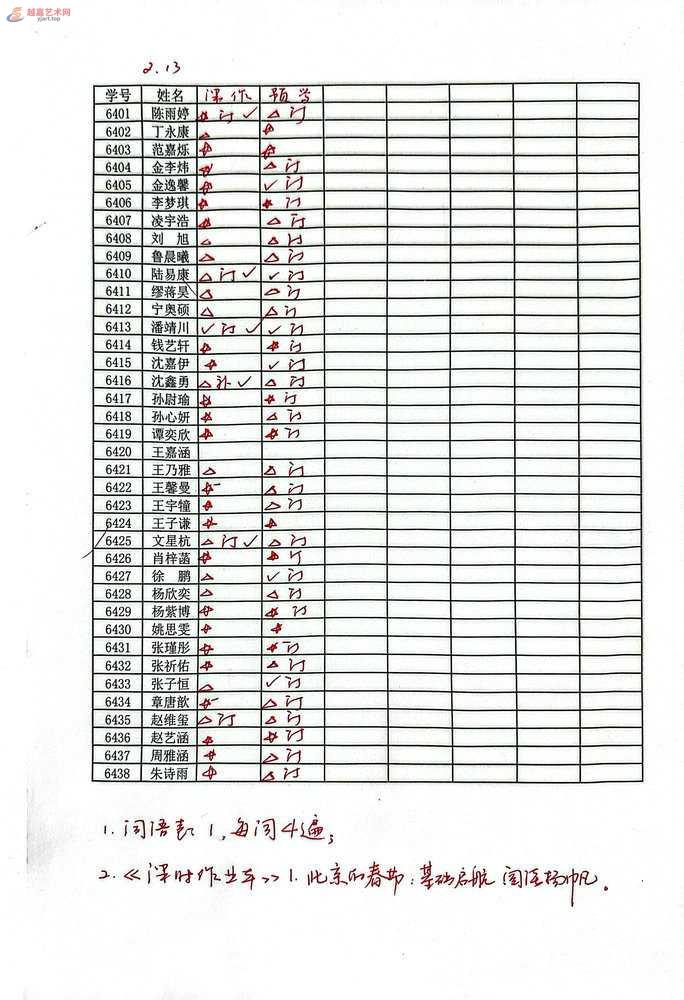 越嘉艺术网
yjart.top
2.13
学号 姓名 课作 预学
6401 陈雨婷 ☆订✓ △订
6402 丁永康 △ ☆
6403 范嘉烁 ☆ ☆
6404 金李炜 ☆ △订
6405 金逸馨 ☆ ✓订
6406 李梦琪 ☆ ☆订
6407 凌宇浩 ☆ △订
6408 刘旭 △ △订
6409 鲁晨曦 △ △订
6410 陆易康 △订✓ ✓订
6411 缪蒋昊 △ △订
6412 宁奥硕 △ △订
6413 潘靖川 ✓订✓ ✓订
6414 钱艺轩 ☆ ☆订
6415 沈嘉伊 ☆ ✓订
6416 沈鑫勇 △补✓ △订
6417 孙尉瑜 ☆ ☆订
6418 孙心妍 ☆ △订
6419 谭奕欣 ☆ ☆订
6420 王嘉涵
6421 王乃雅 △ △订
6422 王馨曼 ☆- △订
6423 王宇犝 ☆ △订
6424 王子谦 ☆ ☆
6425 文星杭 △订✓ △订
6426 肖梓菡 ☆ ☆订
6427 徐鹏 △ ✓订
6428 杨欣奕 △ △订
6429 杨紫博 ☆ ☆订
6430 姚思雯 ☆ ☆
6431 张瑾彤 ☆ ☆订
6432 张祈佑 ☆ △订
6433 张子恒 △ ✓订
6434 章唐歆 ☆- △订
6435 赵维玺 △订 △订
6436 赵艺涵 ☆ ☆订
6437 周雅涵 ☆ △订
6438 朱诗雨 ☆ △订
1. 词语表1,每词4遍;
2.《课时作业本》1.北京的春节:基础启航 阅读扬帆。